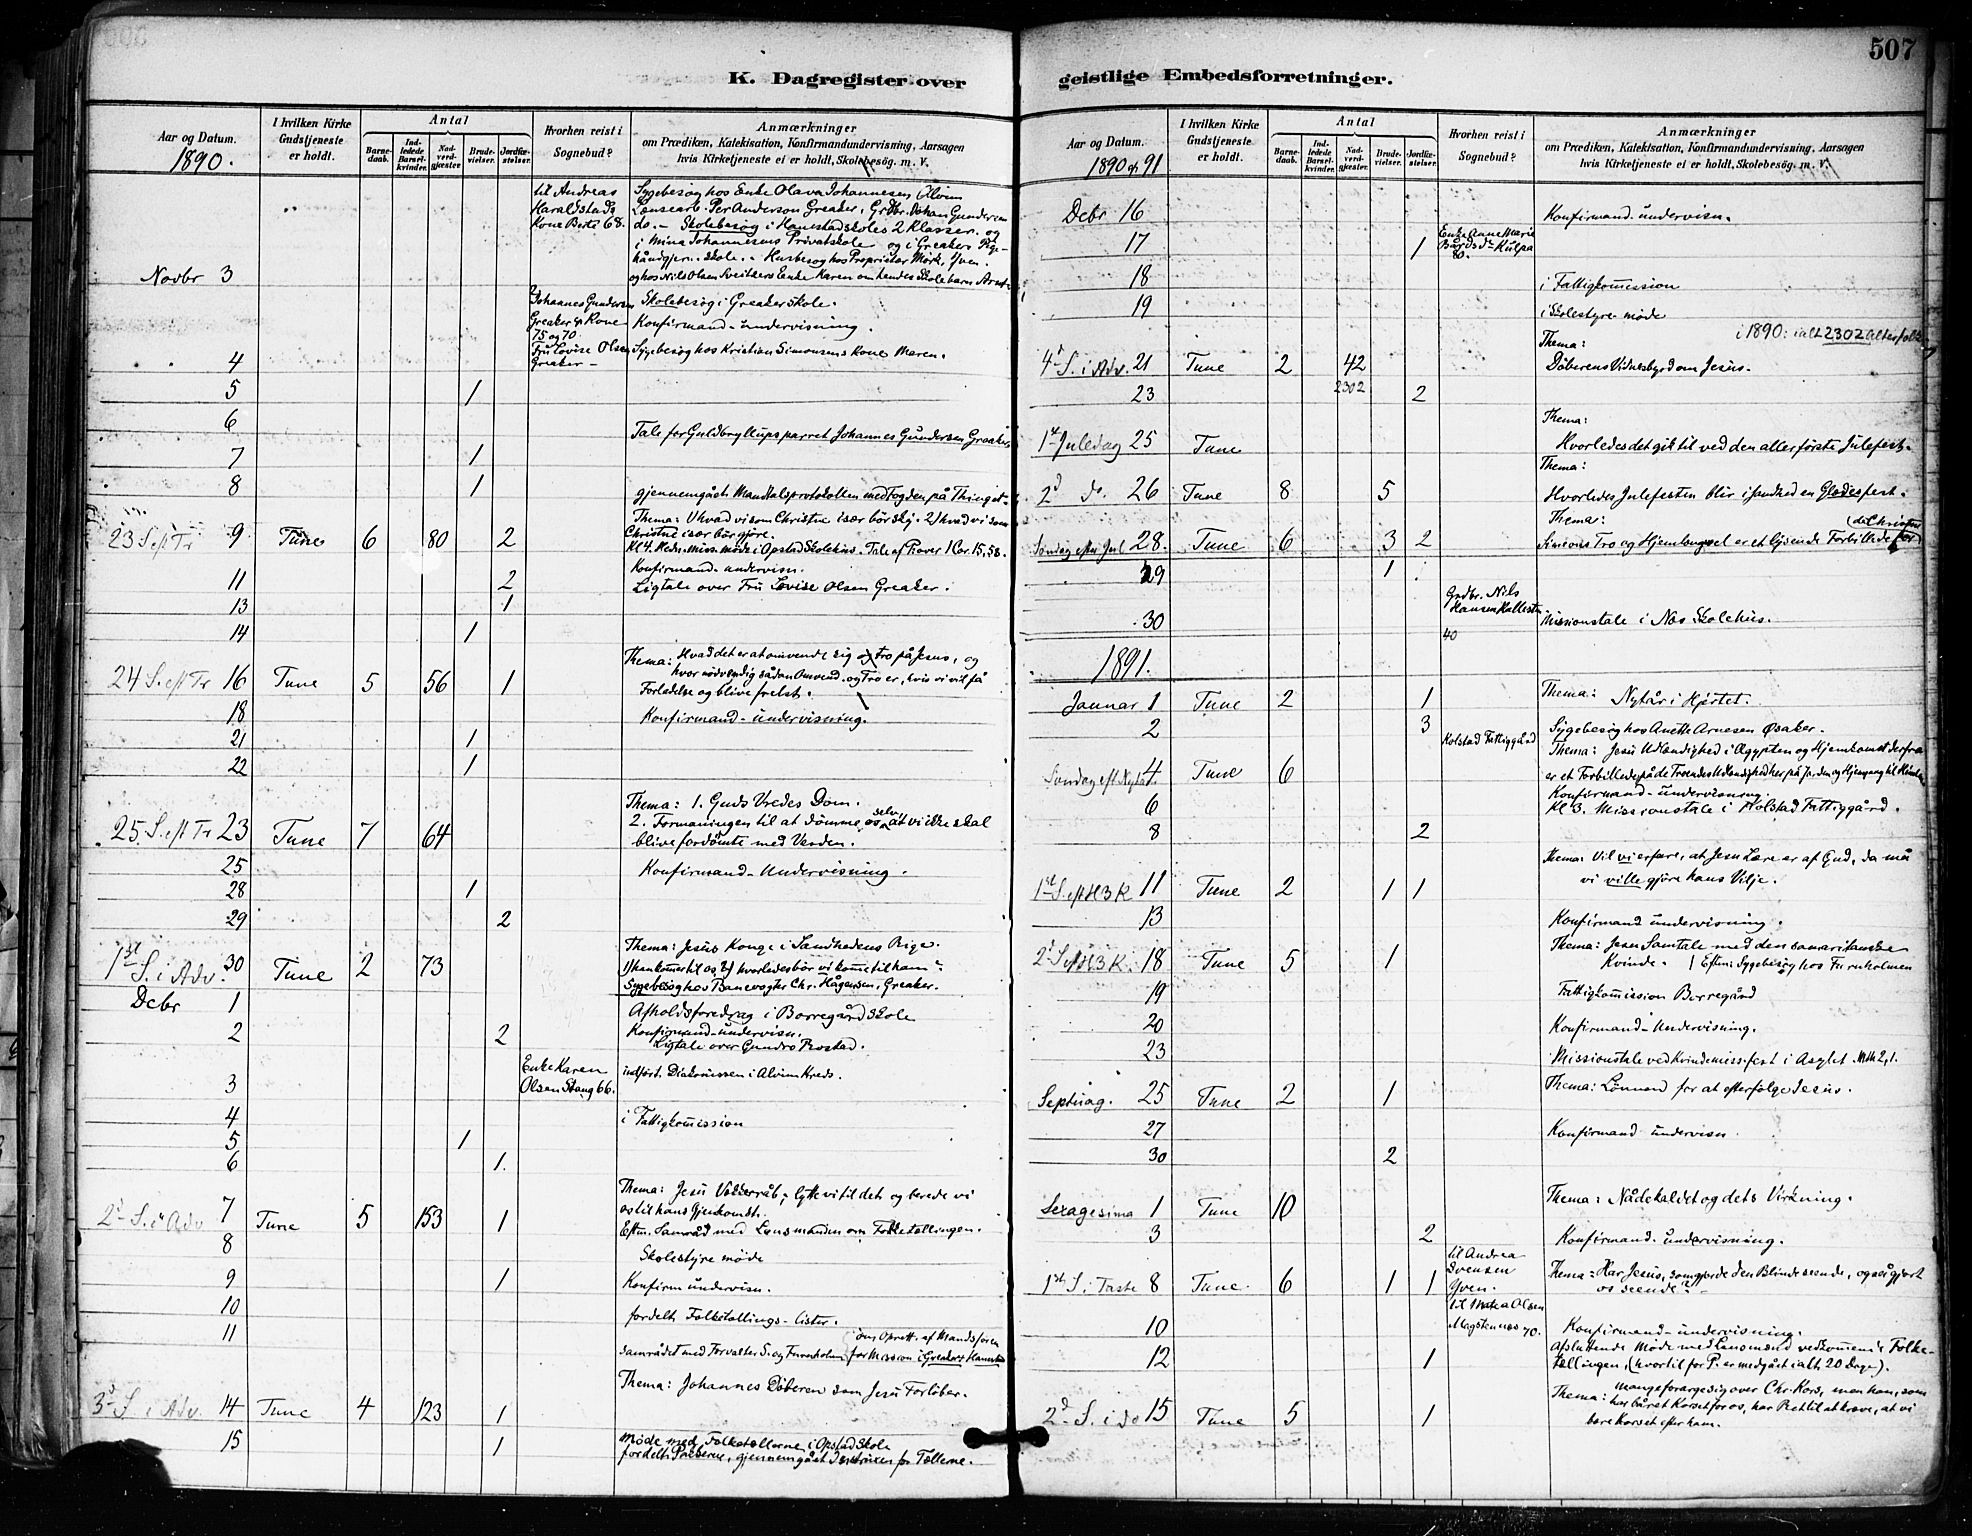 507
K. Dagregister over
geistlige Embedsforretninger.
Aar og Datum.
1890.
I hvilken Kirke Gudstjeneste er holdt.
Antal
Barnedaab.
Indledede Barselkvinder.
Nadverdgjester.
Brudevielser.
Jordfæstelser.
Hvorhen reist i Sognebud?
Anmærkninger
om Prædiken, Katekisation, Konfirmandundervisning, Aarsagen
hvis Kirketjeneste ei er holdt, Skolebesøg. m. V.
til Andreas
Haraldstads
Kone Berte 68.
Sygebesøg hos Enke Olava Johannesen, Alvim
Per Anderson Greaker, Grdbr. Johan Gundersen
do. – Skolebesøg i Hanestadskoles 2 Klasser. og
i Mina Johannesens Privatskole og i Greaker Pige-
håndgjern. skole. – Husbesøg hos Proprietær Mørk, Yven.
og hos Nils Olsen Sveitsers Enke Karen om hendes Skolebarn
Novbr 3
Johannes Gundersen
Greaker & Kone
75 og 70
Skolebesøg i Greaker skole.
Konfirmand-undervisning.
Fru Lovise Olsen
Greaker –
4
Sygebesøg hos Kristian Simonsens Kone Maren.
5 1
6
Tale for Guldbryllupsparret Johannes Gundersen Greaker
7 1
8 1
gjennemgåt Mandtalsprotokollen med Fogden på Thinget.
23 S eft Tr 9 Tune 6 80 2
Thema: 1) hvad vi som Christne især bør sky. 2) hvad vi som
Christne især bør gjøre.
Kl 4. Hedn. miss. møde i Opstad Skolehus. Tale af P. over 1 Cor. 15,58.
Konfirmand-undervisn.
11 2
Ligtale over Fru Lovise Olsen Greaker.
13 1
14 1
24 S. eft Tr 16 Tune 5 56 1
Thema: Hvad det er at omvende sig og Tro på Jesus, og
hvor nødvendig sådan Omvend. og Tro er, hvis vi vil få
Forladelse og blive frelst.
18
Konfirmand-undervisning.
21 1
22 1
Thema: 1. Guds Vredes Dom.
25 S. eft Tr 23 Tune 7 64
2. Formaningen til at dømme os selv at vi ikke skal
blive fordømte med Verden.
25
Konfirmand-Undervisning.
28 1
29 2
1st S. i Adv. 30 Tune 2 73
Thema: Jesus Konge i Sandhedens Rige.
1) han kommer til os 2) hvorledes bør vi komme til ham?
Sygebesøg hos Banevogter Chr. Hågensen, Greaker.
Debr 1
Afholdsforedrag i Borregård Skole
2 2
Konfirmand-undervisn.
Ligtale over Gundro Rostad.
3
Enke Karen
Olsen Stang 66.
indført. Diakonissen i Alvim Kreds.
4
i Fattigkommission
5 1
6 1.
2d S. i Adv 7 Tune 5 153 1
Thema: Jesu Vækkerråb; lytte vi til det og berede vi
os til hans Gjenkomst.
Eftm. Samråd med Lensmanden om Folketællingen.
8
Skolestyre møde
9 1
Konfirm undervisn.
10
fordelt Folketællings-lister.
11
om Oprett. af Mandsforen
samrådet med Forvalter S. og Furuholmen for Mission i Greaker & Hannestad
3d S i Adv. 14 Tune 4 123 1
Thema: Johannes Døberen som Jesu Forløber.
15 1
Møde med Folketællerne i Opstad Skole
fordelt Papirerne, gjennemgået Instruxen for Tællerne.
Aar og Datum.
1890 og 91
I hvilken Kirke Gudstjeneste er holdt.
Antal
Barnedaab.
Indledede Barselkvinder.
Nadverdgjester.
Brudevielser.
Jordfæstelser.
Hvorhen reist i Sognebud?
Anmærkninger
om Prædiken, Katekisation, Konfirmandundervisning, Aarsagen
hvis Kirketjeneste ei er holdt, Skolebesøg. m. V.
Debr 16
Konfirmand-undervisn.
17 1
Enke Anne Marie
Bårdsdr Kulpa
80.
18
i Fattigkommission
19
i Skolestyre-møde
i 1890: ialt 2302 altersfolk
Thema:
4d S. i Adv. 21 Tune 2 42
Døberens Vidnesbyrd om Jesus.
23 2302 2
Thema:
1st Juledag 25 Tune
Hvorledes det gik til ved den allerførste Julefest.
Thema:
2d do. 26 Tune 8 5
Hvorledes Julefesten blir i sandhed en Glædesfest.
Thema:
Søndag efter Jul 28. Tune 6 3 2
Simeons Tro og Hjemlængsel er et lysende Forbillede for
de Christne
29 1
Grdbr. Nils
Hansen
40
30
Missionstale i Nes Skolehus.
1891.
Januar 1 Tune 2 1
Thema: Nytår i Hjertet.
2 3
Kolstad Fattiggård
Sygebesøg hos Anette Arnesen Øsaker.
Søndag eft Nytår 4 Tune 6
Thema: Jesu Udlændighed i Ægypten og Hjemkomst derfra
er et Forbillede på de Troendes Udlændighed her på Jorden og Hjemgang til Himlen
6
Konfirmand-undervisning.
Kl 3. Missionstale i Kolstad Fattiggård.
8 2
1st S. eft H3K 11 Tune 2 1 1
Thema: Vil vi erfare, at Jesu Lære er af Gud, da må
vi ville gjøre hans Vilje.
13
Konfirmand undervisning.
2d S. eft H3K. 18 Tune 5 1
Thema: Jesu Samtale med den samaritanske
Kvinde. – Eftm: Sygebesøg hos Furuholmen
19
Fattigkommission Borregård
20
Konfirmand-Undervisning.
23
Missionstale ved Kvindemiss.fest i Asylet Mth 2,1.
Septuag. 25 Tune 2 1
Thema: Lønnen for at efterfølge Jesus.
27
Konfirmand-undervisn
30 2
Sexagesima 1 Tune 10
Thema: Nådekaldet og dets Virkning.
3 2
Konfirmand-undervisning.
til Andrea
Svensen
Yven.
1st S. i Faste 8 Tune. 6 1 1
Thema: Har Jesus, som gjorde den Blinde seende, også gjort
os seende? –
til Mathea Olsen
Magstennes 70.
10
Konfirmand-undervisning.
12 1
Afsluttende Møde med Lensmand vedkommende Folke-
tællingen, (hvortil for P. er medgåt ialt 20 Dage).
2d S. i do 15 Tune 5 1
Thema: mange forarge sig over Chr. Kors, men han, som
har båret Korset for os, har Ret til at kræve, at vi
bære Korset efter ham.